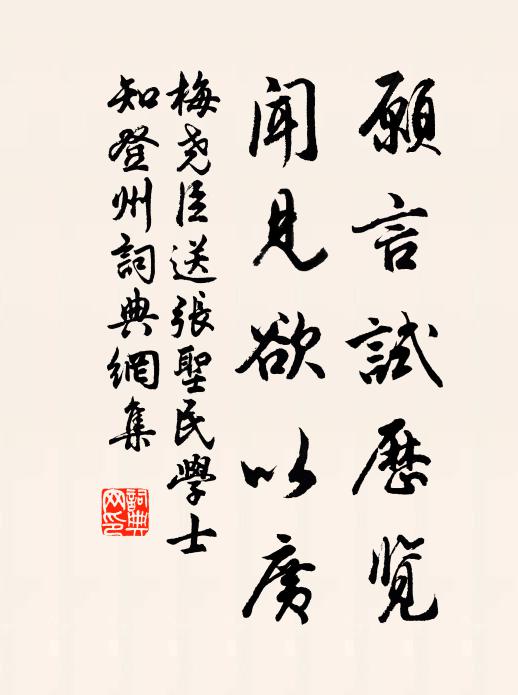 願言試歷覽
聞見欲以廣
梅堯臣送張聖民學士
知登州詞典網集
詞典
网印